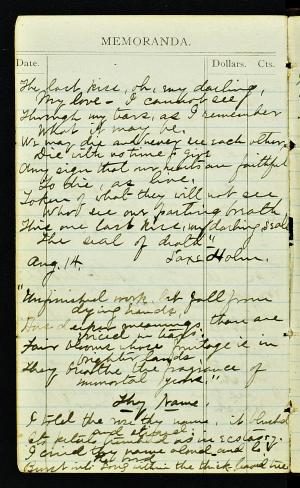 MEMORANDA.
Date. Dollars. Cts.
The last kiss, oh, my darling,
My love - I cannot see
Through my tears, as I remember
What it may be.
We may die and never see each other,
Die with no time to give
Any sign that our hearts are faithful
To die, as live.
Token of what they will not see
Who see our parting breath,
This one last kiss, my darling, seals
The seal of death"
Aug. 14. Saxe Holm.
"Unfinished work, let fall from
dying hands,
Has deeper meanings than are
voiced in lays;
Fair blooms whose fruitage is in
brighter lands
They breathe the fragrance of
immortal
Thy Name.
I told the rose thy name, it blushed
and
Its petals as in ecstasy.
I cried thy name aloud and
Burst into song within the thick leaved tree